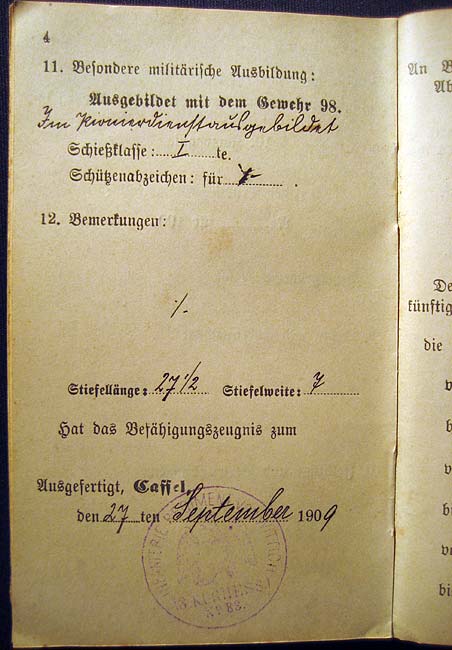 4
11. Besondere militärische Ausbildung:
Ausgebildet mit dem Gewehr 98.
Im Pionierdienst ausgebildet
Schießklasse: I te.
Schützenabzeichen: für
12. Bemerkungen:
Stiefellänge: 27 1/2 Stiefelweite: 7
Hat das Befähigungszeugnis zum
Ausgefertigt, Cassel,
den 27 ten September 1909
An B
Ab
De
künftig
die
v
b
v
b
v
bi